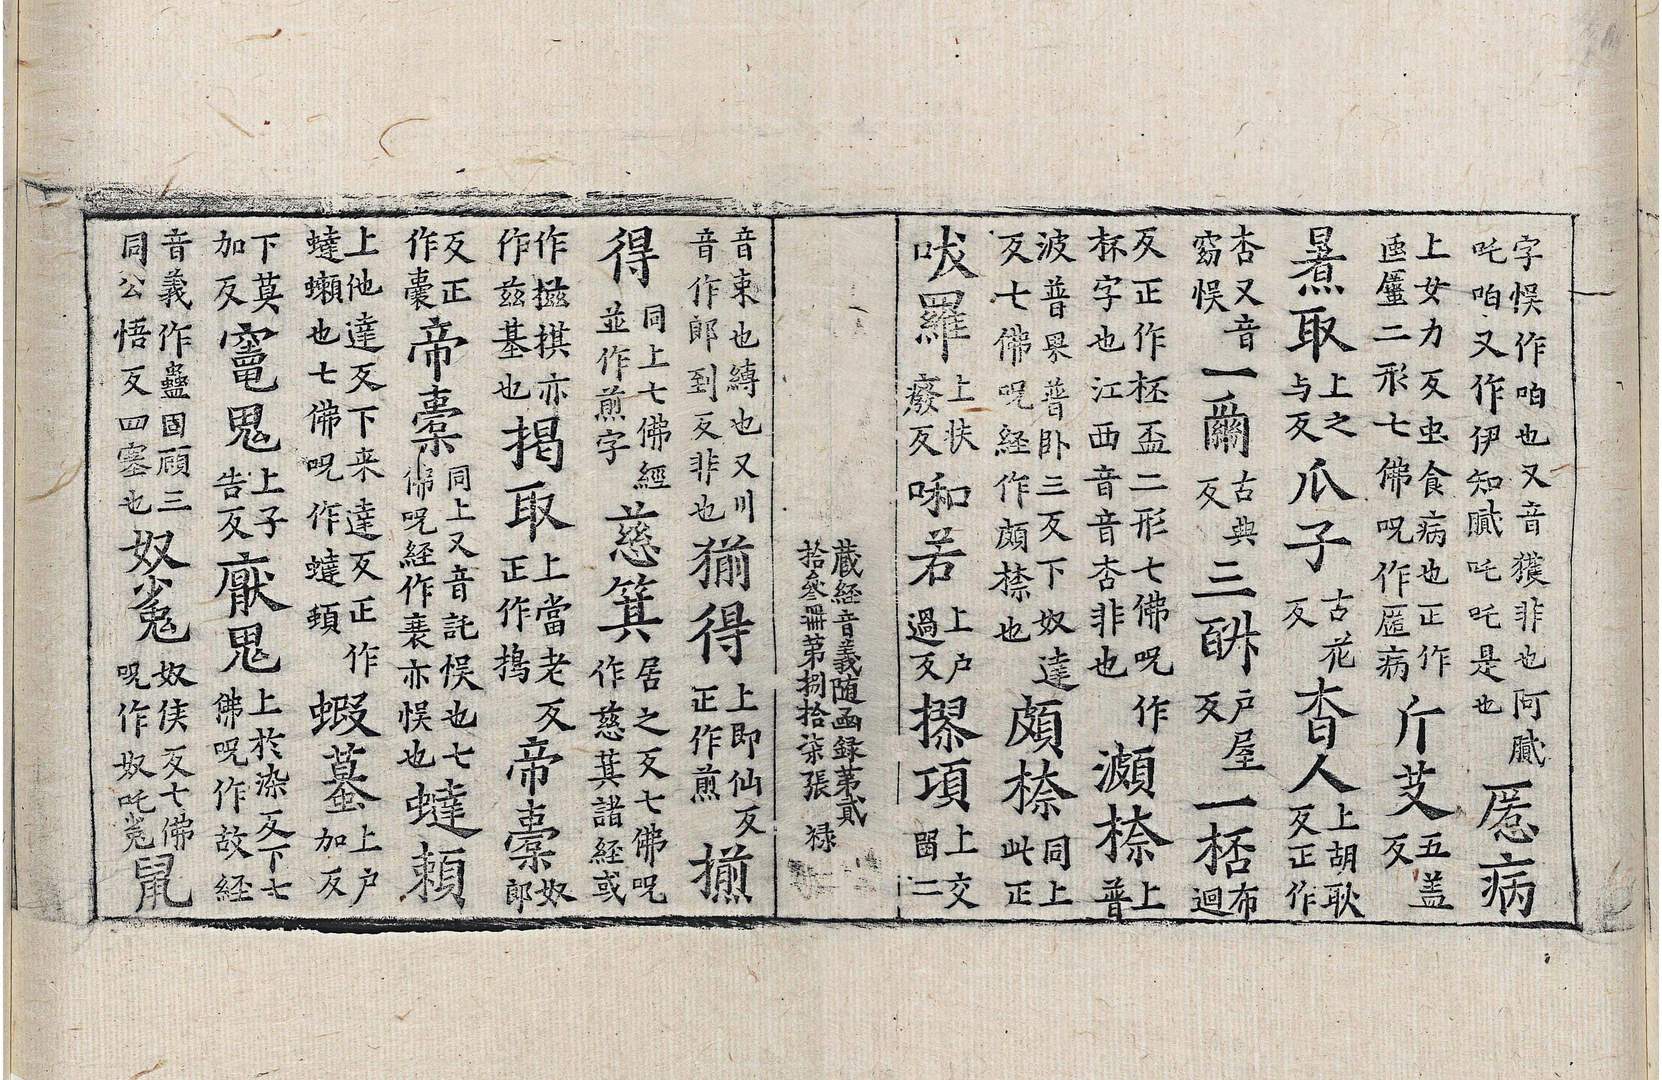 字悮作咱也又音㺉非也阿膩
吒咱又作伊知膩吒吒是也
慝病
上女力反虫食病也正作
𠥾䘌二形七佛呪作匿病
斤芰
五盖
反
㬠取
上之
与反
爪子
古花
反
杳人
上胡耿
反正作
杏又音
窈悮
一𠐋
古典
反
三𨠑
戸屋
反
一栝
布
迴
反正作柸盃二形七佛呪作
柸字也江西音音杏非也
灦㮏
上
普
波普界普卧三反下奴達
反七佛呪経作頗㮏也
頗㮏
同上
此正
吠羅
上扶
癈反
啝若
上户
過反
摎項
上交
㘝二
蔵経音義随函録苐貳
拾叄冊苐捌拾柒張 禄
音束也縛也又川
音作郎到反非也
猏得
上即仙反
正作煎
㨵
得
同上七佛經
並作煎字
慈箕
居之反七佛呪
作慈萁諸經或
作㨱掑亦
作兹基也
揭取
上當老反
正作擣
帝橐
奴
郎
反正
作囊
帝橐
同上又音託悮也七
佛呪経作裹亦悮也
蟽頼
上他達反下来達反正作
蟽蠏也七佛呪作蟽頼
蝦蟇
上户
加反
下莫
加反
竃鬼
上子
告反
厭鬼
上扵染反下七
佛呪作故経
音義作蠱固顧三
同公悟反四塞也
奴㝹
奴侯反七佛
呪作奴吒㝹
鼠